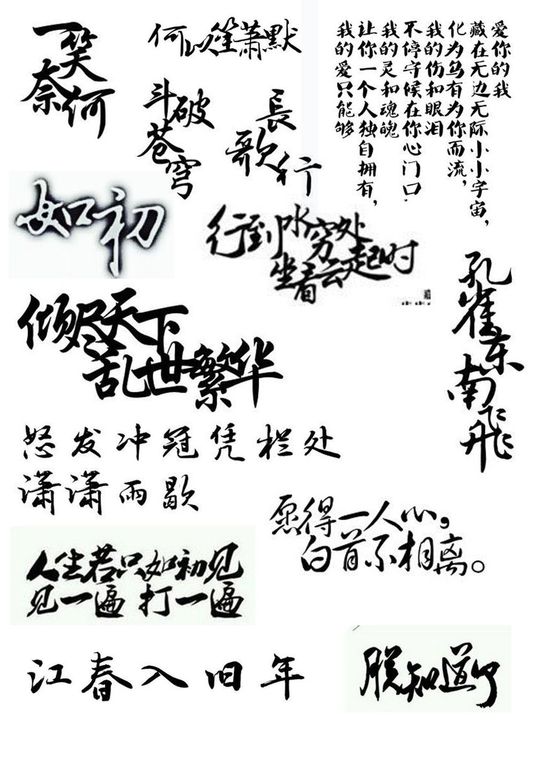 一笑
奈何
何以笙萧默
斗破
苍穹
長
歌行
我的爱只能够
让你一个人独自拥有，
我的灵和魂魄
不停守候在你心门口.
我的伤和眼泪
化为乌有为你而流，
藏在无边无际小小宇宙，
爱你的我
如初
行到水穷处
坐看云起时
孔雀东南飞
倾尽天下
乱世繁华
怒发冲冠凭栏处
潇潇雨歇
愿得一人心，
白首不相离。
人生若只如初见
见一遍 打一遍
江春入旧年
朕知道了